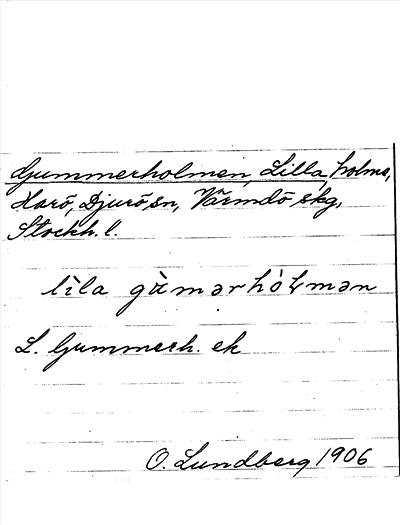 Gummerholmen, Lilla, holme,
Harö, Djurö sn, Värmdö skg,
Stockh. l.
lìla gùmərhòɫmən
L. Gummerh. ek
O. Lundberg 1906